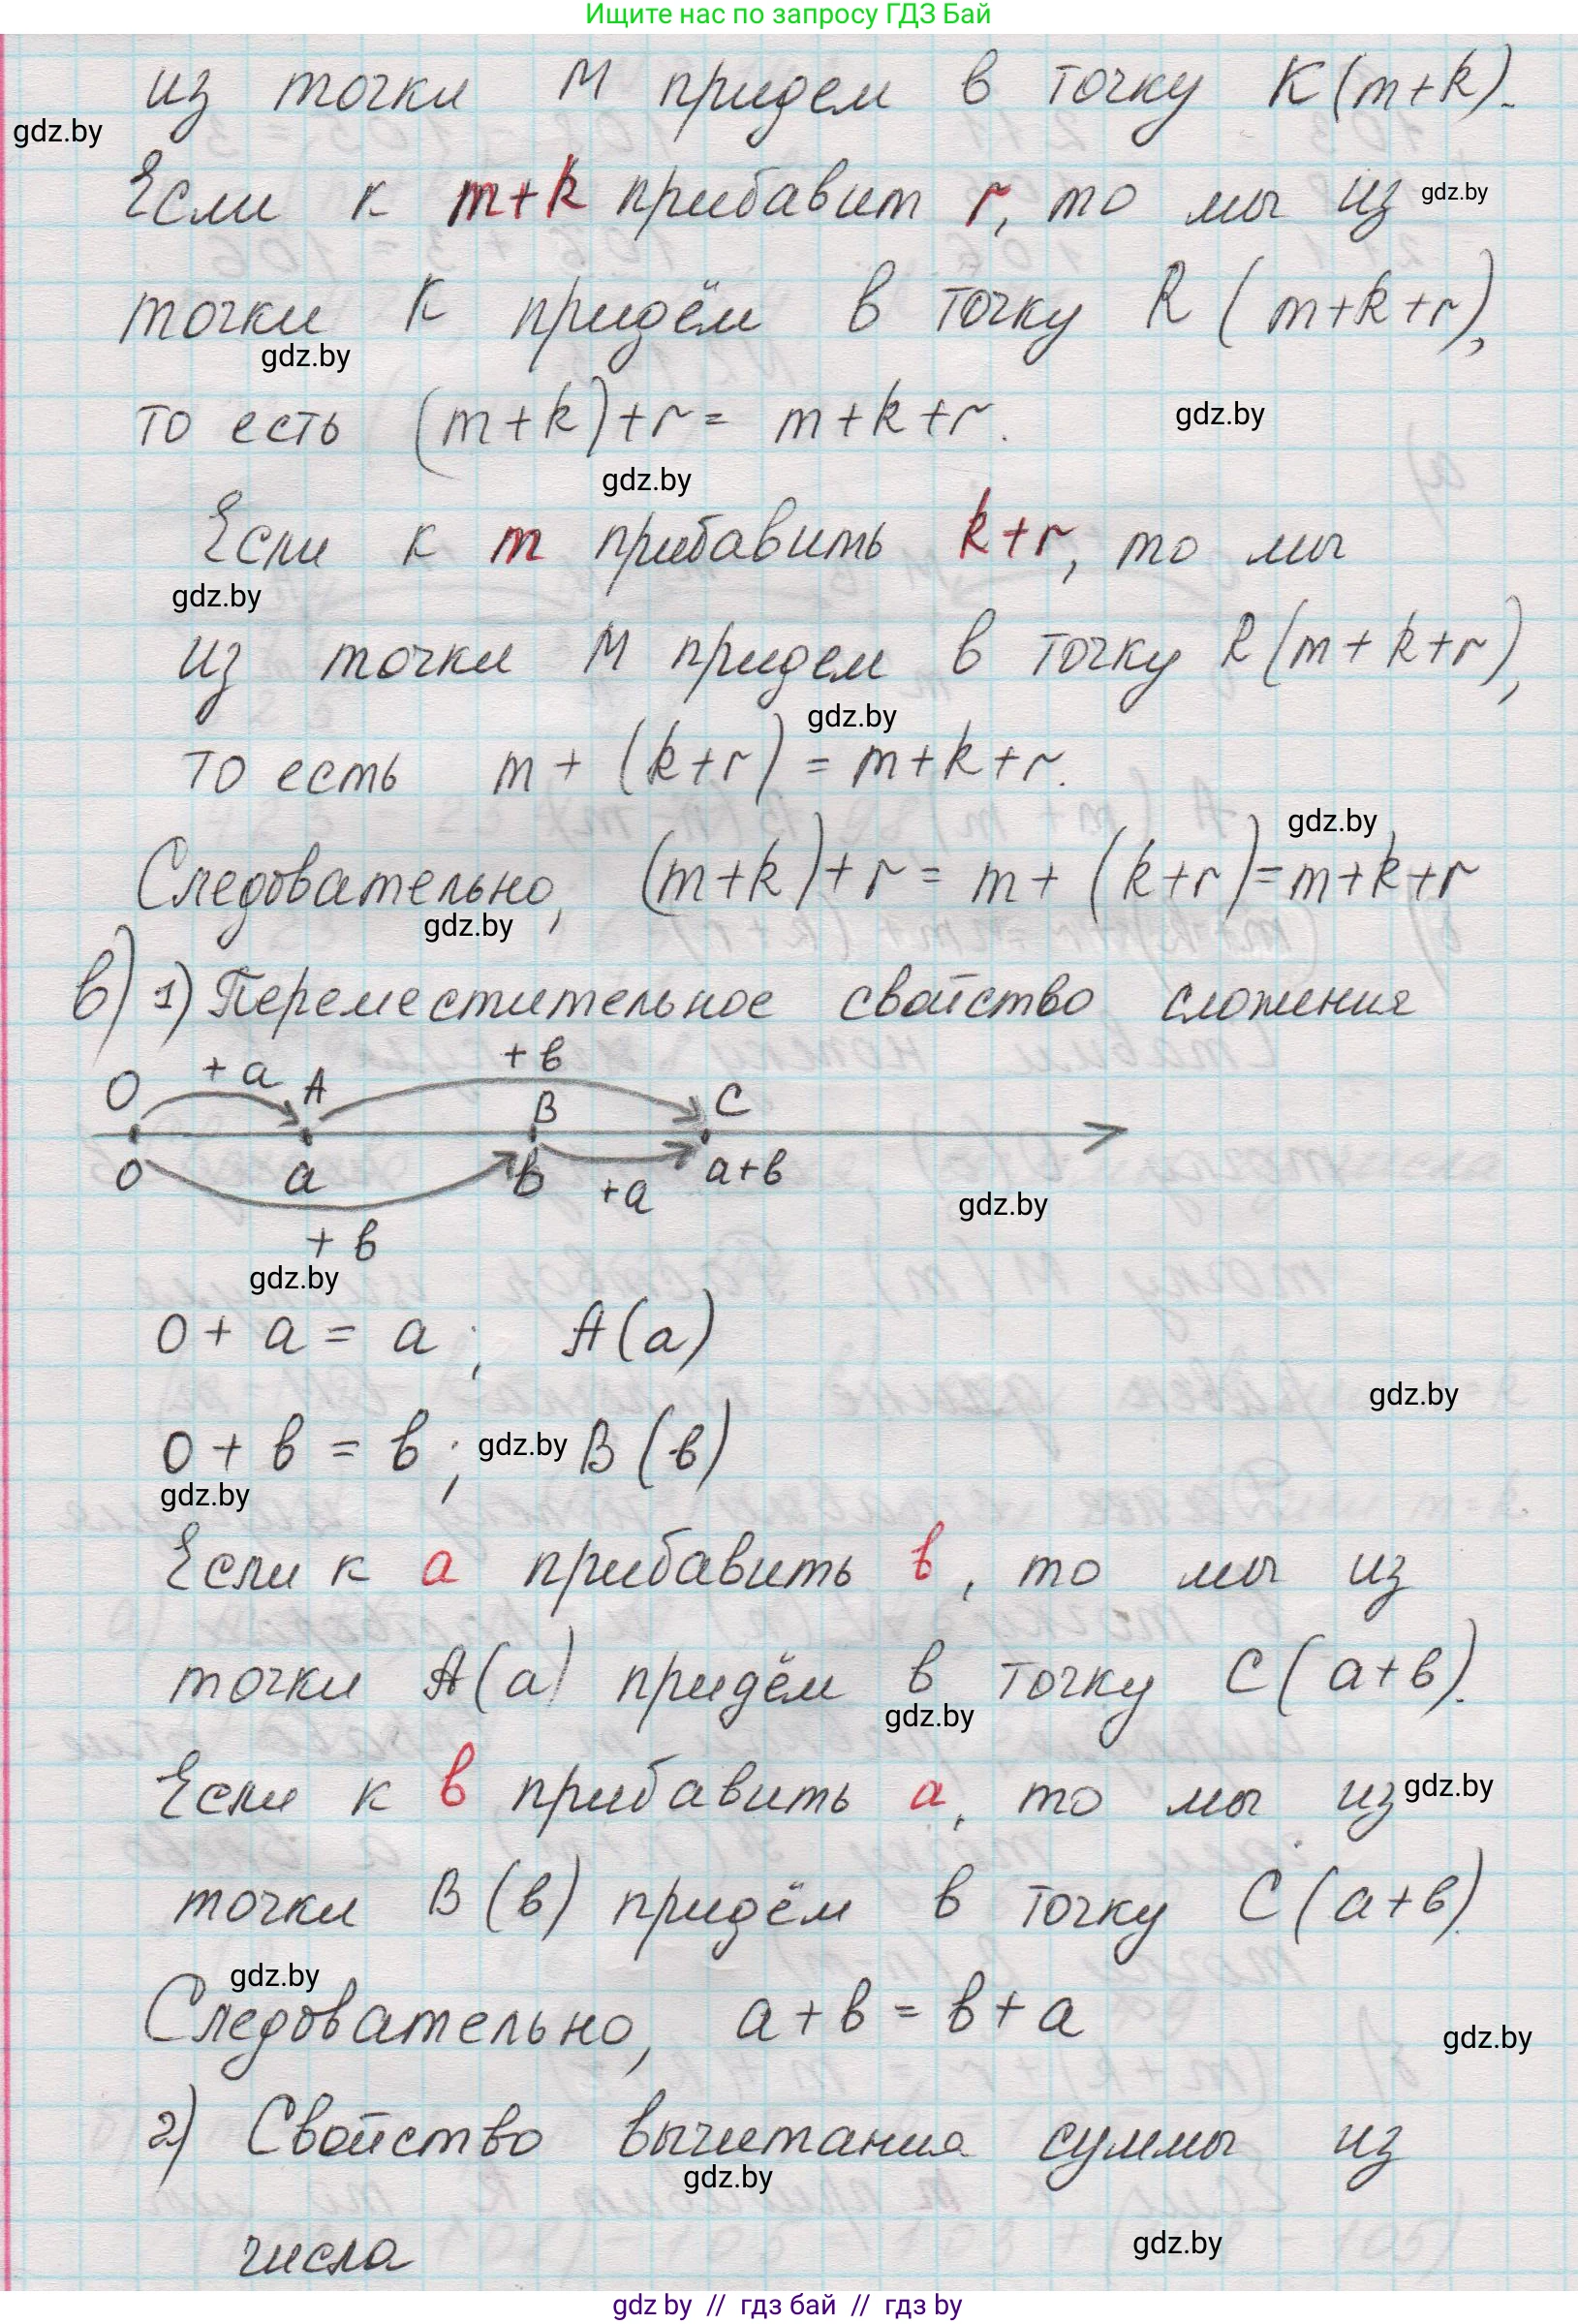 Ищите нас по запросу ГДЗ Бай
из точки M придем в точку K(m+k).
gdz.by
Если к m+k прибавит r, то мы из gdz.by
точки K придём в точку R (m+k+r),
gdz.by
то есть (m+k)+r = m+k+r. gdz.by
gdz.by
Если к m прибавить k+r, то мы
gdz.by
из точки M придем в точку R(m+k+r),
gdz.by
то есть m + (k+r) = m+k+r.
gdz.by
Следовательно, (m+k)+r = m+ (k+r)=m+k+r
gdz.by
в) 1) Переместительное свойство сложения
+a +в
O A B C
0 a в +a a+в
gdz.by
+ в
gdz.by
0 + a = a ; A(a)
gdz.by
0 + в = в ; gdz.by B (в)
gdz.by
Если к a прибавить в, то мы из
точки A(a) придём в точку C(a+в).
gdz.by
Если к в прибавить a, то мы из gdz.by
точки B(в) придём в точку C(a+в).
gdz.by
Следовательно, a+в = в+a
gdz.by
2) Свойство вычитания суммы из
gdz.by
числа
gdz.by
gdz by // гдз бай // гдз by